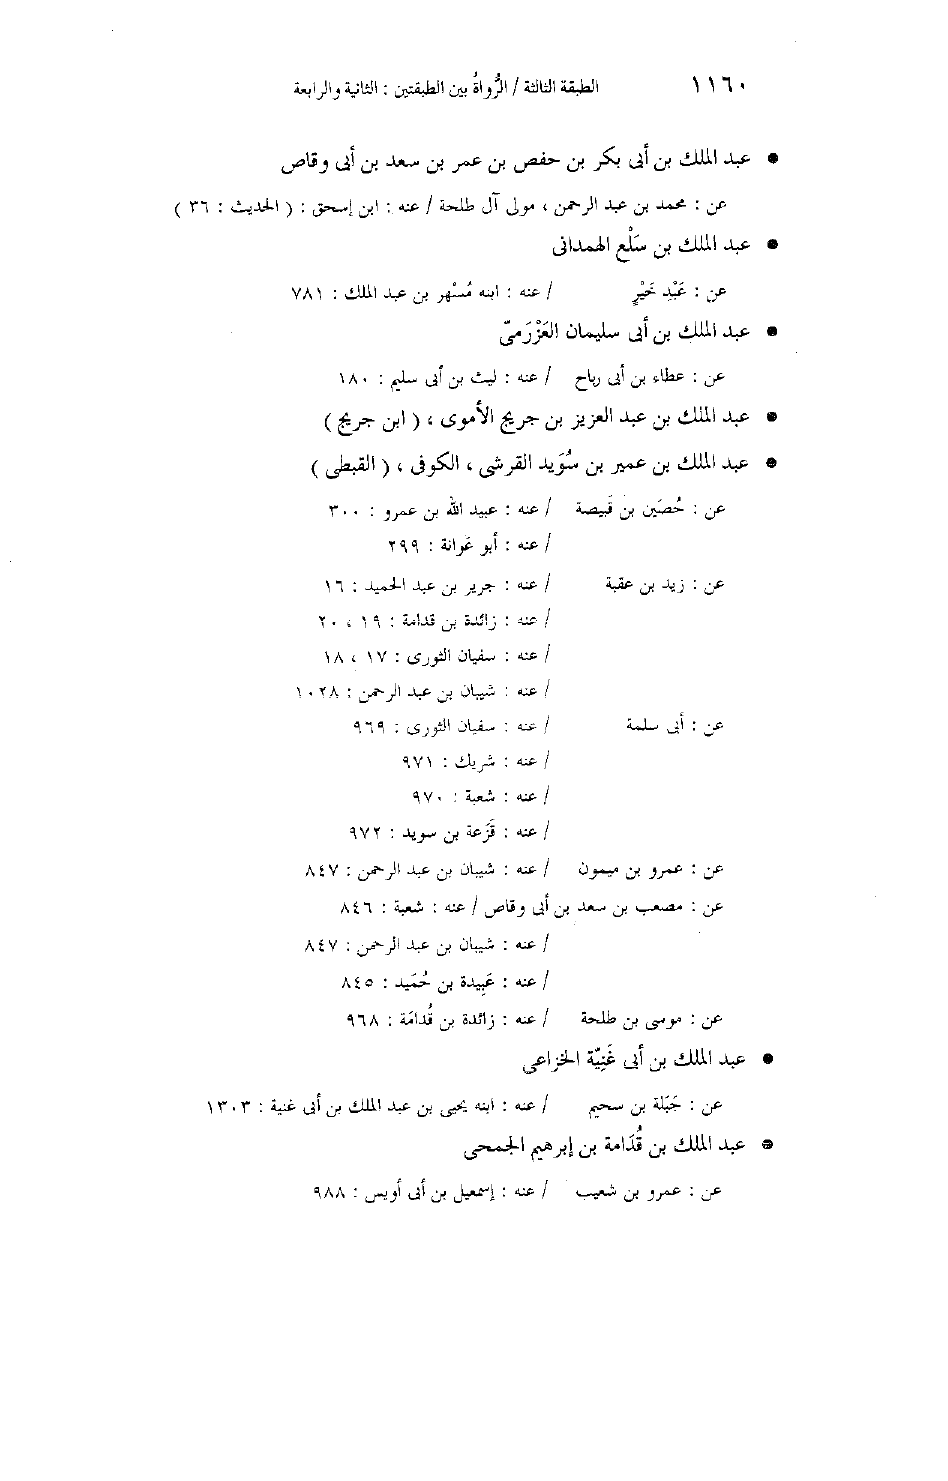 ١١٦٠ الطبقة الثالثة / الرُّواةُ بين الطبقتين : الثانية والرابعة
● عبد الملك بن أبى بكر بن حفص بن عمر بن سعد بن أبى وقاص
عن : محمد بن عبد الرحمن ، مولى آل طلحة / عنه : ابن إسحق : ( الحديث : ٣٦ )
● عبد الملك بن سَلْع الهمدانى
عن : عَبْدِ خَيْرٍ / عنه : ابنه مُسْهر بن عبد الملك : ٧٨١
● عبد الملك بن أبى سليمان العَرْزَمىّ
عن : عطاء بن أبى رباح / عنه : ليث بن أبى سليم : ١٨٠
● عبد الملك بن عبد العزيز بن جريج الأموى ، ( ابن جريج )
● عبد الملك بن عمير بن سُوَيد القرشى ، الكوفى ، ( القبطى )
عن : حُصَين بن قَبيصة / عنه : عبيد الله بن عمرو : ٣٠٠
/ عنه : أبو عَوانة : ٢٩٩
عن : زيد بن عقبة / عنه : جرير بن عبد الحميد : ١٦
/ عنه : زائدة بن قدامة : ١٩ ، ٢٠
/ عنه : سفيان الثورى : ١٧ ، ١٨
/ عنه : شيبان بن عبد الرحمن : ١٠٢٨
عن : أبى سلمة / عنه : سفيان الثورى : ٩٦٩
/ عنه : شريك : ٩٧١
/ عنه : شعبة : ٩٧٠
/ عنه : قَزَعة بن سويد : ٩٧٢
عن : عمرو بن ميمون / عنه : شيبان بن عبد الرحمن : ٨٤٧
عن : مصعب بن سعد بن أبى وقاص / عنه : شعبة : ٨٤٦
/ عنه : شيبان بن عبد الرحمن : ٨٤٧
/ عنه : عَبِيدة بن حُمَيد : ٨٤٥
عن : موسى بن طلحة / عنه : زائدة بن قُدامَة : ٩٦٨
● عبد الملك بن أبى غَنِيّة الخزاعى
عن : جَبَلة بن سحيم / عنه : ابنه يحيى بن عبد الملك بن أبى غنية : ١٣٠٣
● عبد الملك بن قُدَامة بن إبرهيم الجمحى
عن : عمرو بن شعيب / عنه : إسمعيل بن أبى أويس : ٩٨٨